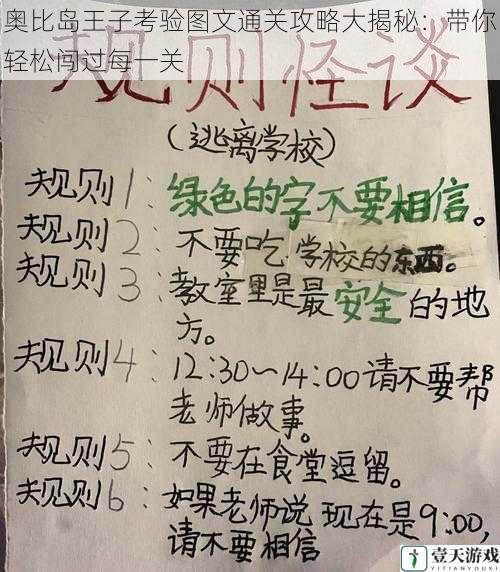 奥比岛王子考验图文通关攻略大揭秘：带你
轻松闯过每一关
规则怪谈
(逃离学校)
规则1：绿色的字不要相信。
规则2：不要吃学校的东西。
规则3：教室里是最安全的地
方。
规则4：12:30～14:00请不要帮
老师做事。
规则5：不要在食堂逗留。
规则6：如果老师说现在是9:00,
请不要相信
壹天游戏
YITIANYOUXI